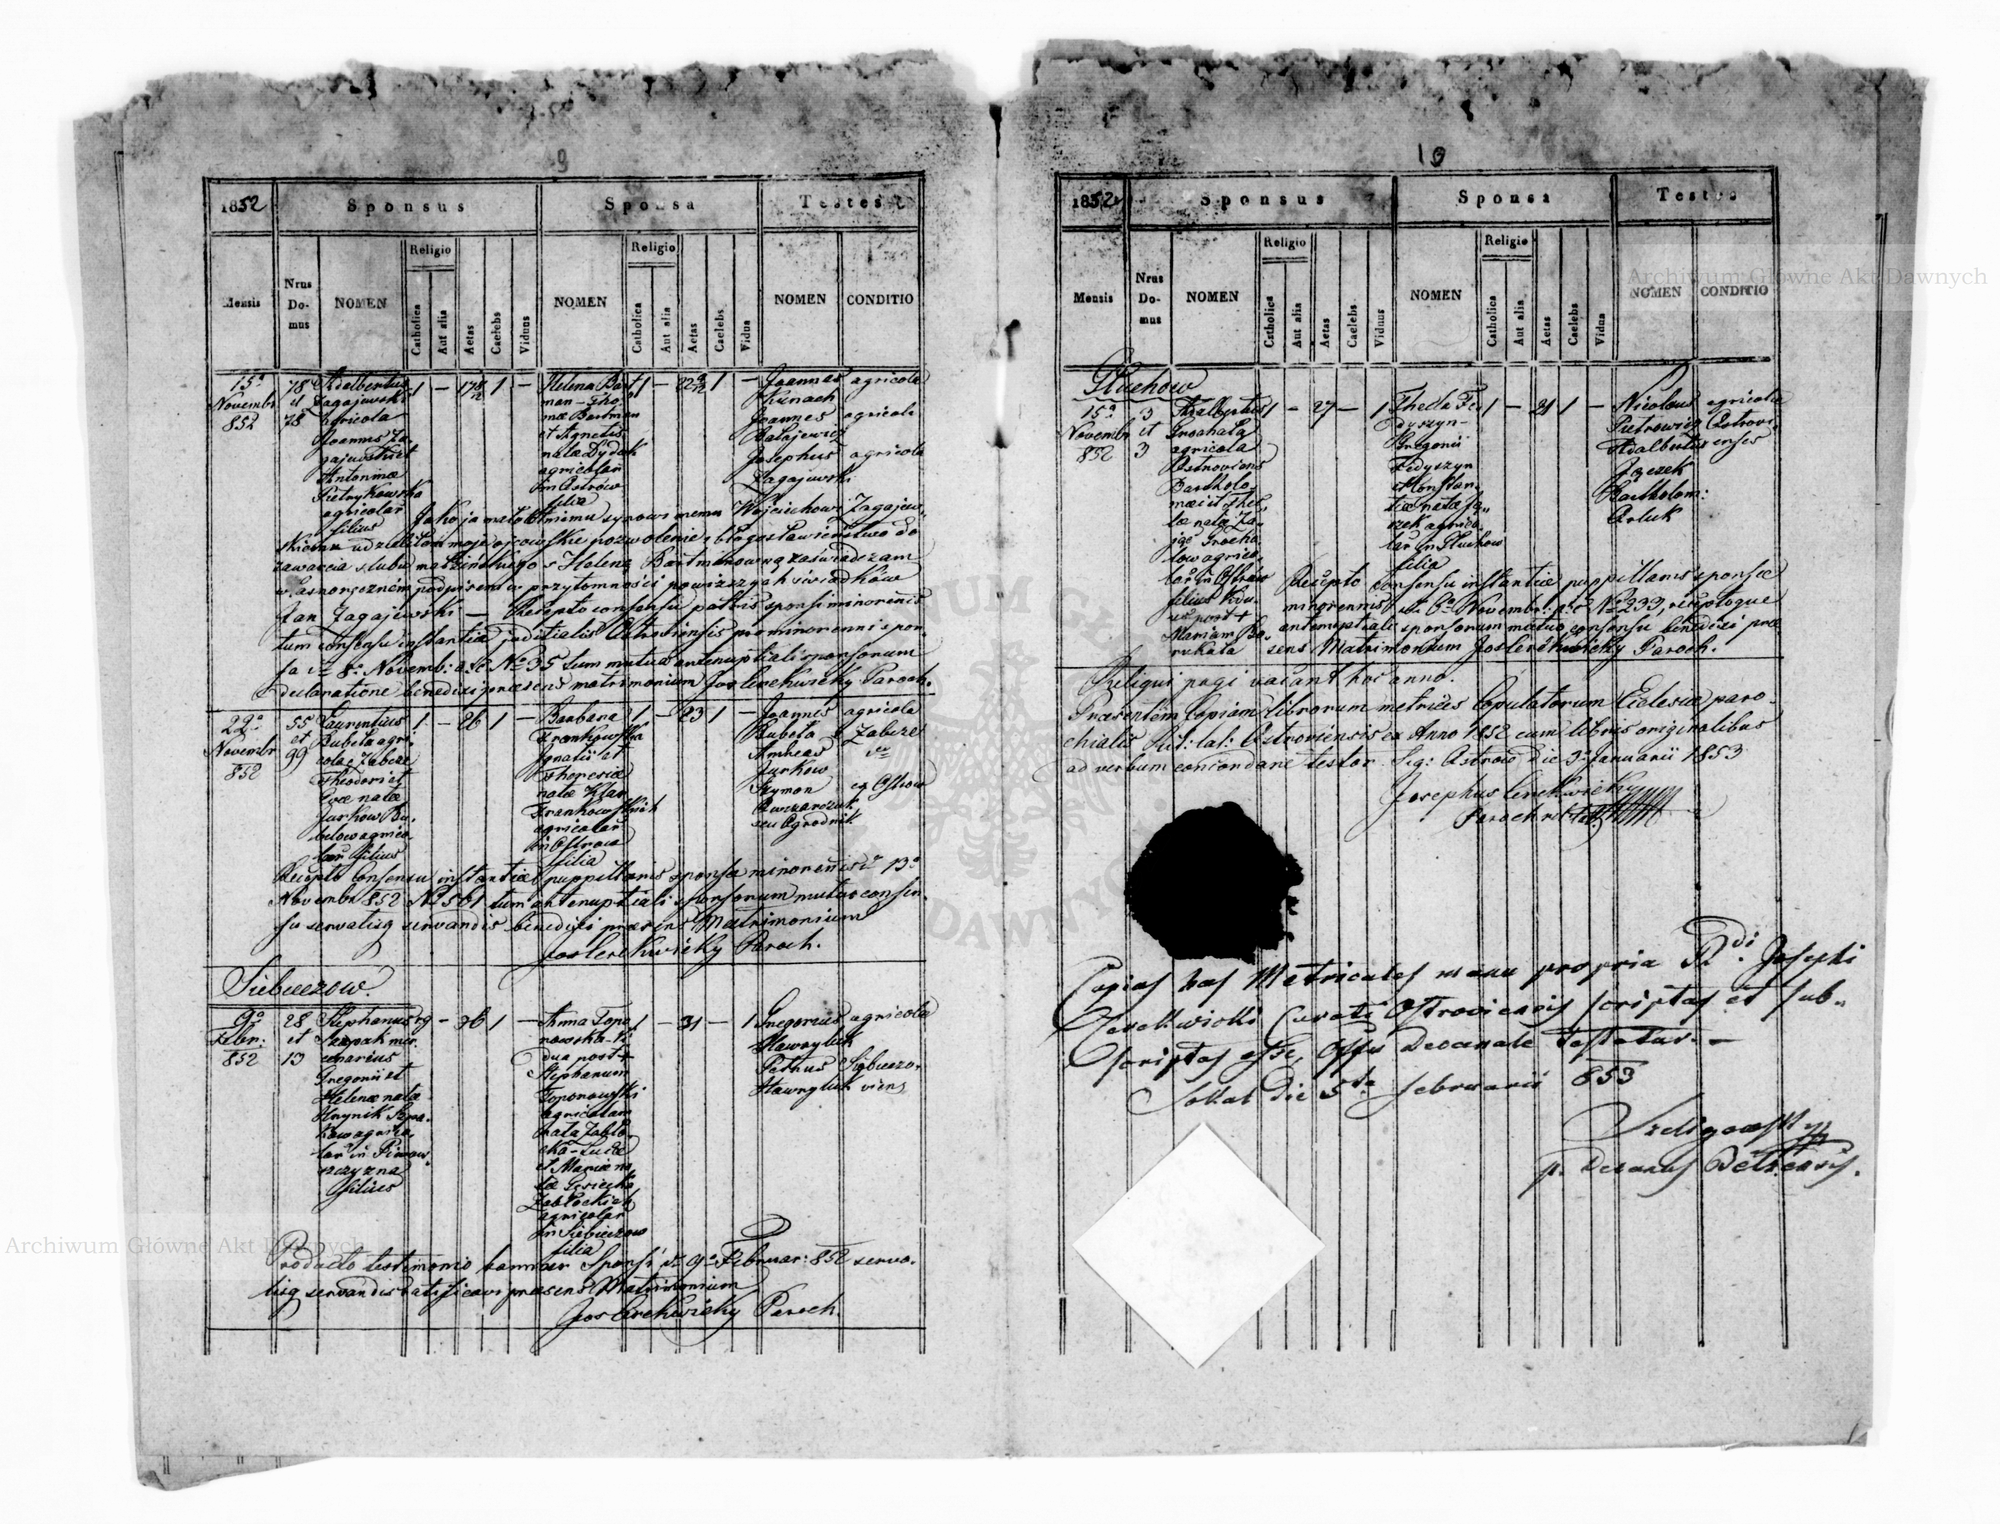 9
1852
Sponsus
Sponsa
Testes
Mensis
Nrus Domus
NOMEN
Religio
Catholica
Aut alia
Aetas
Caelebs
Viduus
NOMEN
Religio
Catholica
Aut alia
Aetas
Caelebs
Vidua
NOMEN
CONDITIO
15a
Novembr
852
78
et
78
Adalbertus
Zagajewski
agricola
Joannes Za
gajewski et
Antoninae
Pietrykowska
agricolar
filius
1 –
1 –
Helena Bart
man – Tho
mae Bartman
et Agnetis
natae Dydak
agricolar
in Ostrów
filia
1 –
1 –
Joannes agricola
Kunach
Joannes agricola
Batajewicz
Josephus agricola
Zagajewski
Jako ja małoletniemu synowi memu Wojciechowi Zagajew
skiemu udzieliłem moje ojcowskie pozwolenie i błogosławieństwo do
zawarcia ślubu małżeńskiego z Heleną Bartmanówną zaświadczam
własnoręcznem podpisem w przytomności powyższych świadków
Jan Zagajewski — Recepto consensu patris sponsi minorennis
tum consensu instantiae juditialis Ostroviensis pro minorenni spon
sa de 8a Novemb: a.c. No 35 tum mutua antenuptiali sponsorum
declaratione benedixi praesens matrimonium Jos Cerekwicky Paroch.
22a
Novembr
852
55
et
99
Laurentius
Bubela agri
cola e Zabcze
Theodori et
Evae natae
Jurkow Bu
below agrico
lar filius
1 – 26 1 –
Barbara
Frankowska
Ignatii et
Theresiae
natae Klar
Frankowskich
agricolar
in Ostrow
filia
1 – 23 1 –
Joannes agricola
Bubela e Zabcze
Andreas
Jurkow
Szymon ex Ostrow
seu Ogrodnik
Recepto Consensu instantiae puppillaris sponsae minorennis de 13a
Novembr 852 No 561 tum antenuptiali sponsorum mutuo consen
su servatisq servandis benedixi praesens Matrimonium
Jos Cerekwicky Paroch.
Siebieczow.
9a
Febr:
852
28
et
13
Stephanus
Szepak mer
cenarius
Gregorii et
Helenae natae
Hrynik Szpa
kow agrico
lar in Piwow
szczyzna
filius
– 36 1 –
Anna Topo
nowska – Vi
dua post +
Stephanum
Toponowski
agricolam
nata Zabło
cka – Lucae
et Mariae na
tae Gorecka
Zabłockich
agricolar
in Siebieczow
filia
1 – 31 – 1
Gregorius agricola
Hawryluk
Petrus Siebieczo
Hawryluk viens
Producto testimonio bannor Sponsi de 9a Februar: 852 serva
tisq servandis ratificavi praesens Matrimonium
Jos Cerekwicky Paroch.
19
1852
Sponsus
Sponsa
Testes
Mensis
Nrus Domus
NOMEN
Religio
Catholica
Aut alia
Aetas
Caelebs
Viduus
NOMEN
Religio
Catholica
Aut alia
Aetas
Caelebs
Vidua
NOMEN
CONDITIO
Głuchow
15a
Novembr
852
3
et
3
Adalbertus
Grochala
agricola
Ostroviens
Bartholo
maei et Thec
lae nata Za
jąc Grocha
low agrico
lar in Ostrów
filius Vidu
us post +
Mariam Bo
rukata
1 – 27 – 1
Thecla Fe
dyszyn –
Gregorii
Fedyszyn
et Constan
tiae nata Ja
szek agrico
lar in Głuchow
filia
1 – 21 1 –
Nicolaus agricola
Pietrowicz Ostrovi
Adalbertus enses
Jaszek
Bartholom:
Orluk
Recepto consensu instantiae puppillaris sponsae
minorennis de 6a Novembr: a.c. No 233, receptoque
antenuptiali sponsorum mutuo consensu benedixi prae
sens Matrimonium Jos Cerekwicky Paroch.
Reliqui pagi vacant hoc anno.
Praesentem Copiam librorum metrices Copulatorum Ecclesiae paro
chialis Rit: lat: Ostroviensis ex Anno 1852 cum libris originalibus
ad verbum concordare testor. Sig: Ostrow die 3a Januarii 1853
Josephus Cerekwicky
Parochus
Copias has Metricales manu propria Rdi. Josephi
Cerekwicki Curati Ostroviensis scriptas et sub
scriptas esse, Offm Decanale testatur. —
Sokal die 5ta februarii 853
Szeligowski
p. Decanus Belzensis.
Archiwum Główne Akt Dawnych
Archiwum Główne Akt Dawnych